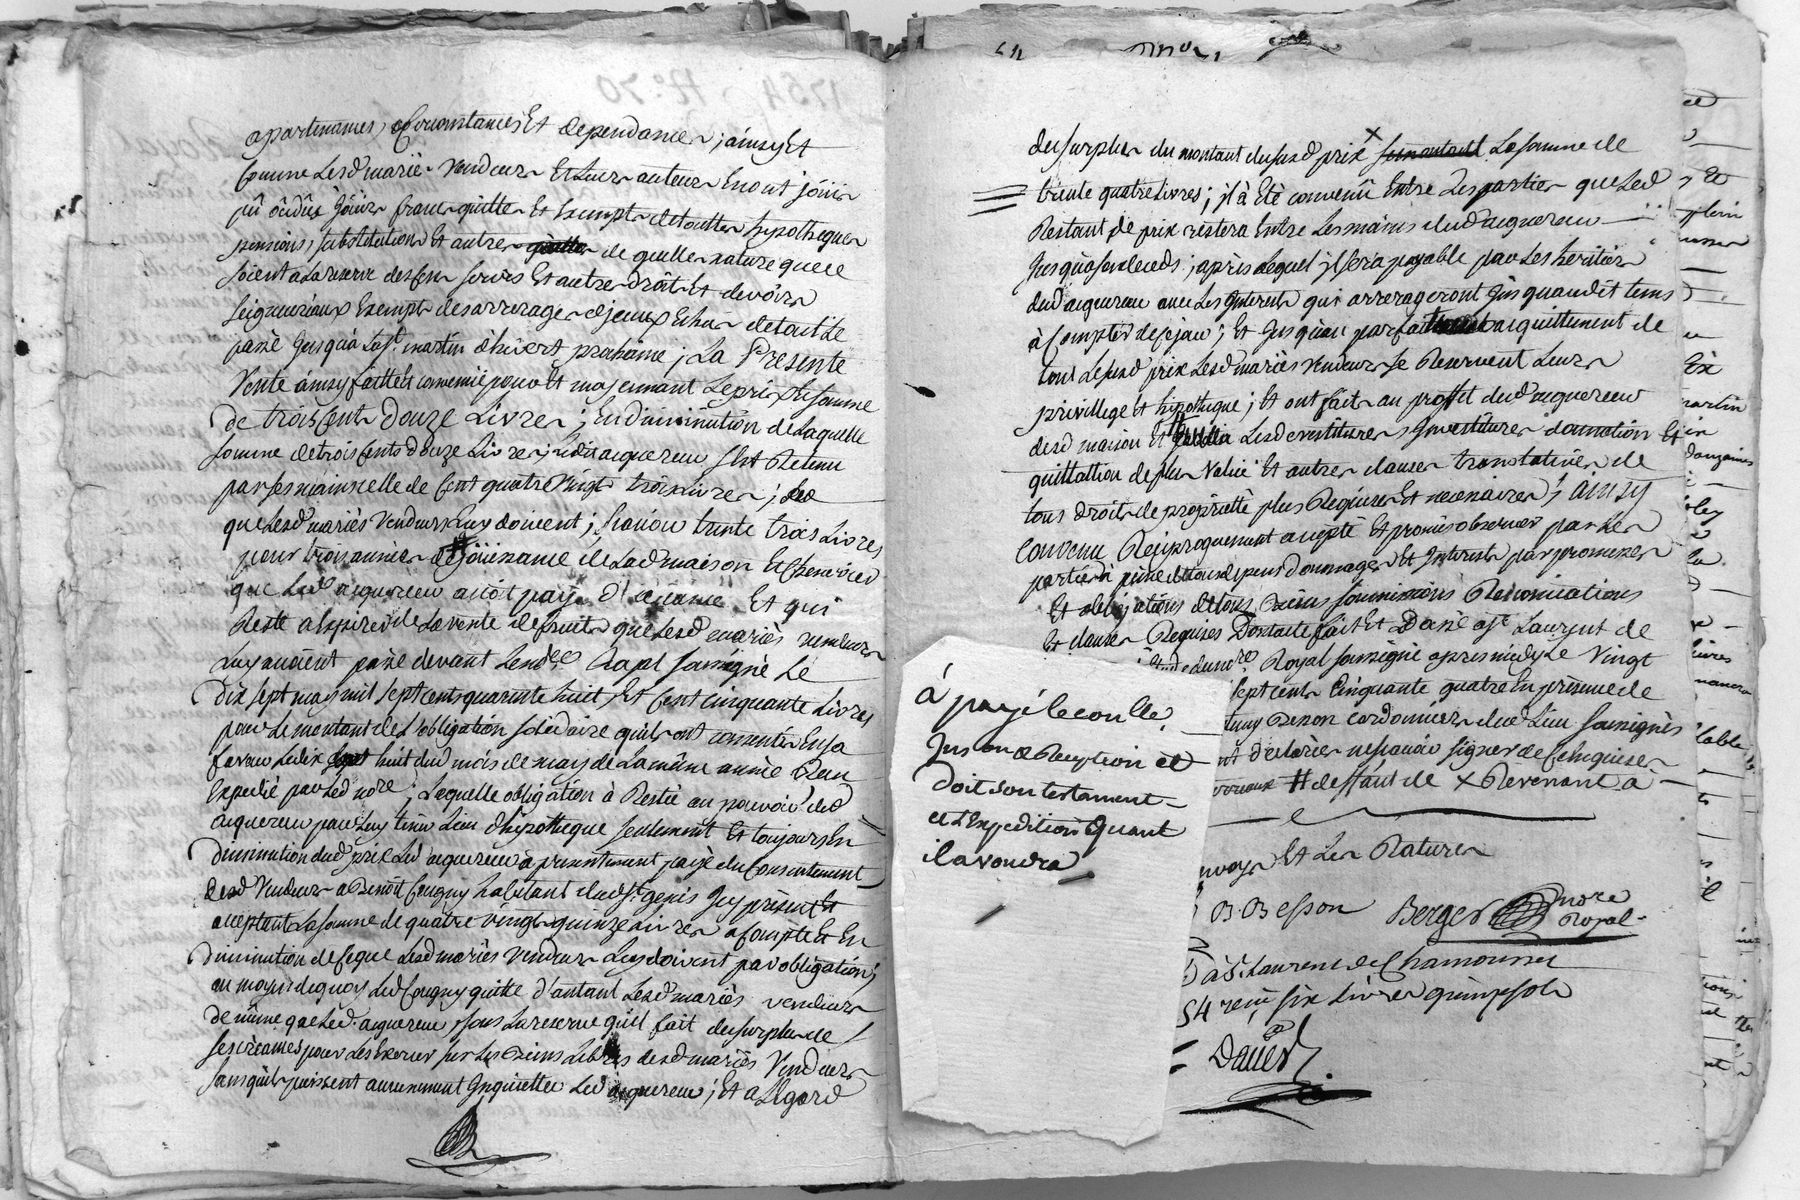 apartenances, Circonstances Et dependances; ainsy Et
Comme Lesd mariés Vendeurs Et Leurs auteurs En ont joüir
pû ou dûs joüir francs quitte Et Exempt detouttes hypotheques
pensions, substitutions Et autres de quelle nature quele
soient a La reserve des Cens servis Et autres droits Et devoirs
seigneuriaux Exempt des arrerages djceux Echus detout Le
passé jusqua La st. martin d'hivert prochaine; La Presente
Vente ainsy faitte Et convenüe pour Et moyennant Le prix Et somme
de trois Cents Douze Livres; En diminution de Laquelle
somme de trois Cents douze Livres, Ledit acquereur s'est Retenu
par ses mains celle de Cent quatre Vingt trois Livres;
que Lesd mariés Vendeurs Luy doivent; scavoir trente trois Livres
pour trois années # joüissance de Lad maison Et Cheneviere
que Led acquereur auoit payé d'avance Et qui
Reste a Expirer de La vente de fruits que Lesd mariés vendeurs
Luy auoient passé devant Led nore Royal soussigné Le
Dix sept may mil sept cents quarante huit Et Cent Cinquante Livres
pour Le montant de L'obligation solidaire quils ont consentie En sa
faveur Le dix huit dud mois de may de La même année
Expedié par Led nore; Laquelle obligation à Resté au pouvoir dud
acquereur pour Luy tenir Lieu d'hypotheque seulement Et toujours En
Diminution dud prix Led acquereur à presentement payé du Consentement
desd Vendeurs a Benoit Cougny habitant dud st. genis Jcy present Et
acceptant La somme de quatre vingt quinze Livres a Compte Et En
Diminution de Ce que Lesd mariés Vendeurs Luy doivent par obligation;
au moyen de quoy Led Cougny quitte d'autant Lesd mariés vendeurs
De même que Led. acquereur, sous La reserve quil fait du surplus de
ses creances pour Les Exercer sur Les Biens Libres desd mariés Vendeurs
sans quils puissent aucunement Jnquietter Led acquereur; Et a L'Egard
du surplus du montant dususd prix × La somme de
trente quatre Livres; jl à Eté convenû Entre Les parties que Led
Restant de prix restera Entre Les mains dud acquereur
jusquà son deceds; après Lequel jl sera payable par Les heritiers
dud acquereur avec Les Jnterests qui arrerageront jusquaud tems
à Compter de Cejour; Et jusquau parfait acquittement de
tout Le susd prix Lesd mariés Vendeurs se Reservent Leurs
privillege Et hypotheque; Et ont fait au proffit dud acquereur
desd maison Et Les devestitures, Jnvestitures donnation Et
quittation de plus Value Et autres clauses translatives de
tous droits de proprietté plus Requises Et necessaires; ainsy
Convenu Reciproquement accepté Et promis observer par Les
parties à peine de tous depens dommages Et Jnterests par promesses
Et obligations de tous Biens soumissions Renonciations
Et clauses Requises Dont acte fait Et Passé a st. Laurent de
Royal soussigné apres midy Le Vingt
sept cents Cinquante quatre En presence de
Benon cordonnier dud Lieu soussignés
ne scavoir signer de Ce Enquises
# deffaut de × Revenant a
Et Les Ratures
B. Besson Berger nore Royal
à St. Laurent de Chamousset
54 reçu six Livres quinze sols
Daüer
à payé le coulle
Jus on Reception et
Doit son testament
et L'Expedition Quant
il avoudra